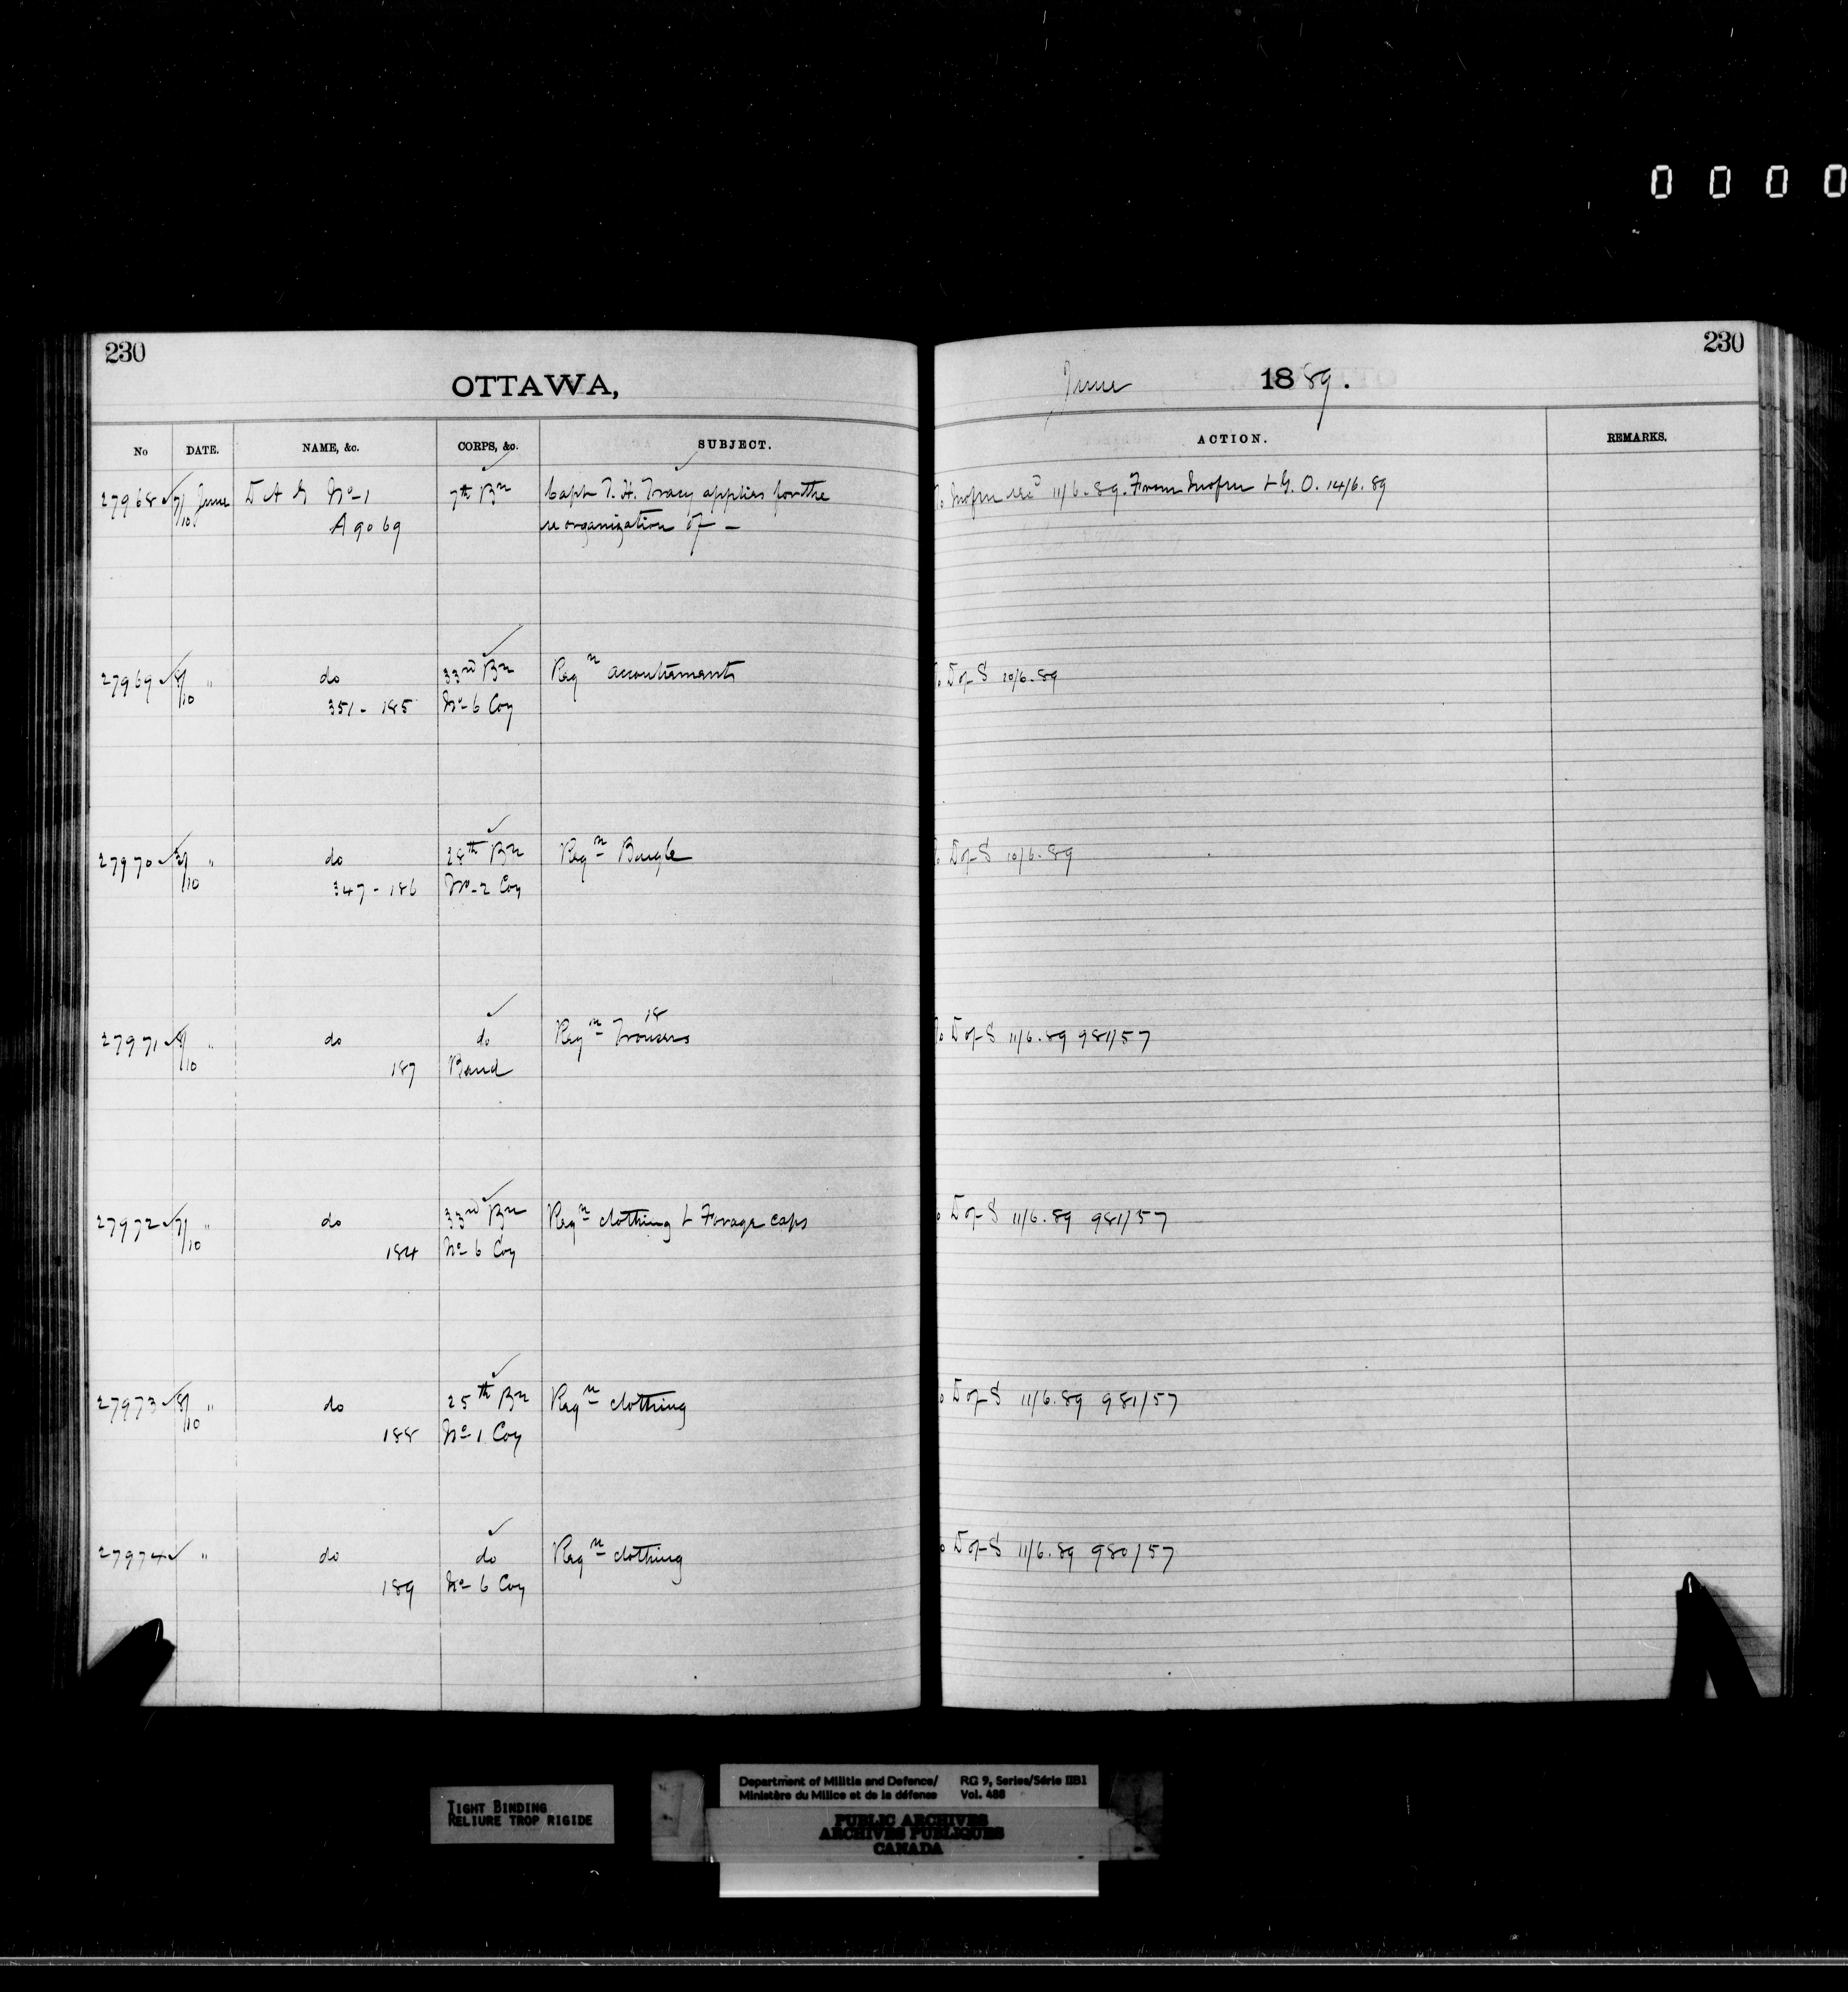 0 0 0 0
230
OTTAWA,
No DATE. NAME, &c. CORPS, &c. SUBJECT.
27968 7/10 June D A G No 1 7th Bn Capt T. H. Tracy applies for the
A 9069 reorganization of —
27969 8/10 " do 33rd Bn Reqn accoutrements
351 - 185 No 6 Coy
27970 /10 " do 28th Bn Reqn Bugle
347 - 186 No 2 Coy
18
27971 8/10 " do do Reqn Trousers
187 Band
27972 7/10 " do 33rd Bn Reqn clothing & Forage caps
184 No 6 Coy
27973 8/10 " do 25th Bn Reqn clothing
188 No 1 Coy
27974 " do do Reqn clothing
189 No 6 Coy
230
June 1889.
ACTION. REMARKS.
11/6.89. From & G. O. 14/6.89
To D of S 10/6.89
To D of S 10/6.89
To D of S 11/6.89 981/57
To D of S 11/6.89 981/57
To D of S 11/6.89 981/57
To D of S 11/6.89 980/57
TIGHT BINDING
RELIURE TROP RIGIDE
Department of Militia and Defence/ RG 9, Series/Série IIB1
Ministère du Milice et de la défense Vol. 488
PUBLIC ARCHIVES
ARCHIVES PUBLIQUES
CANADA